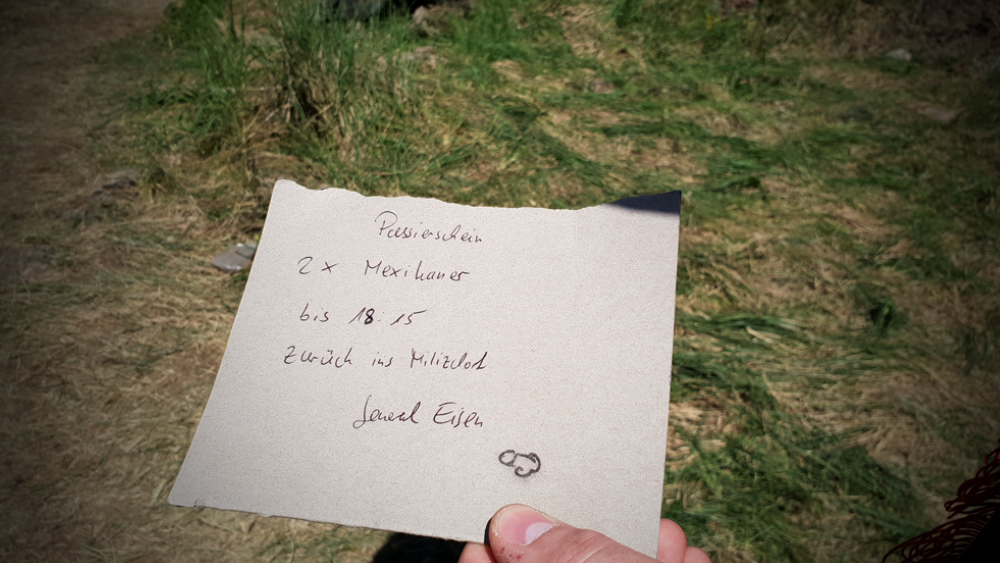 Passierschein
2 x Mexikaner
bis 18:15
Zurück ins Milizdorf
General Eisen